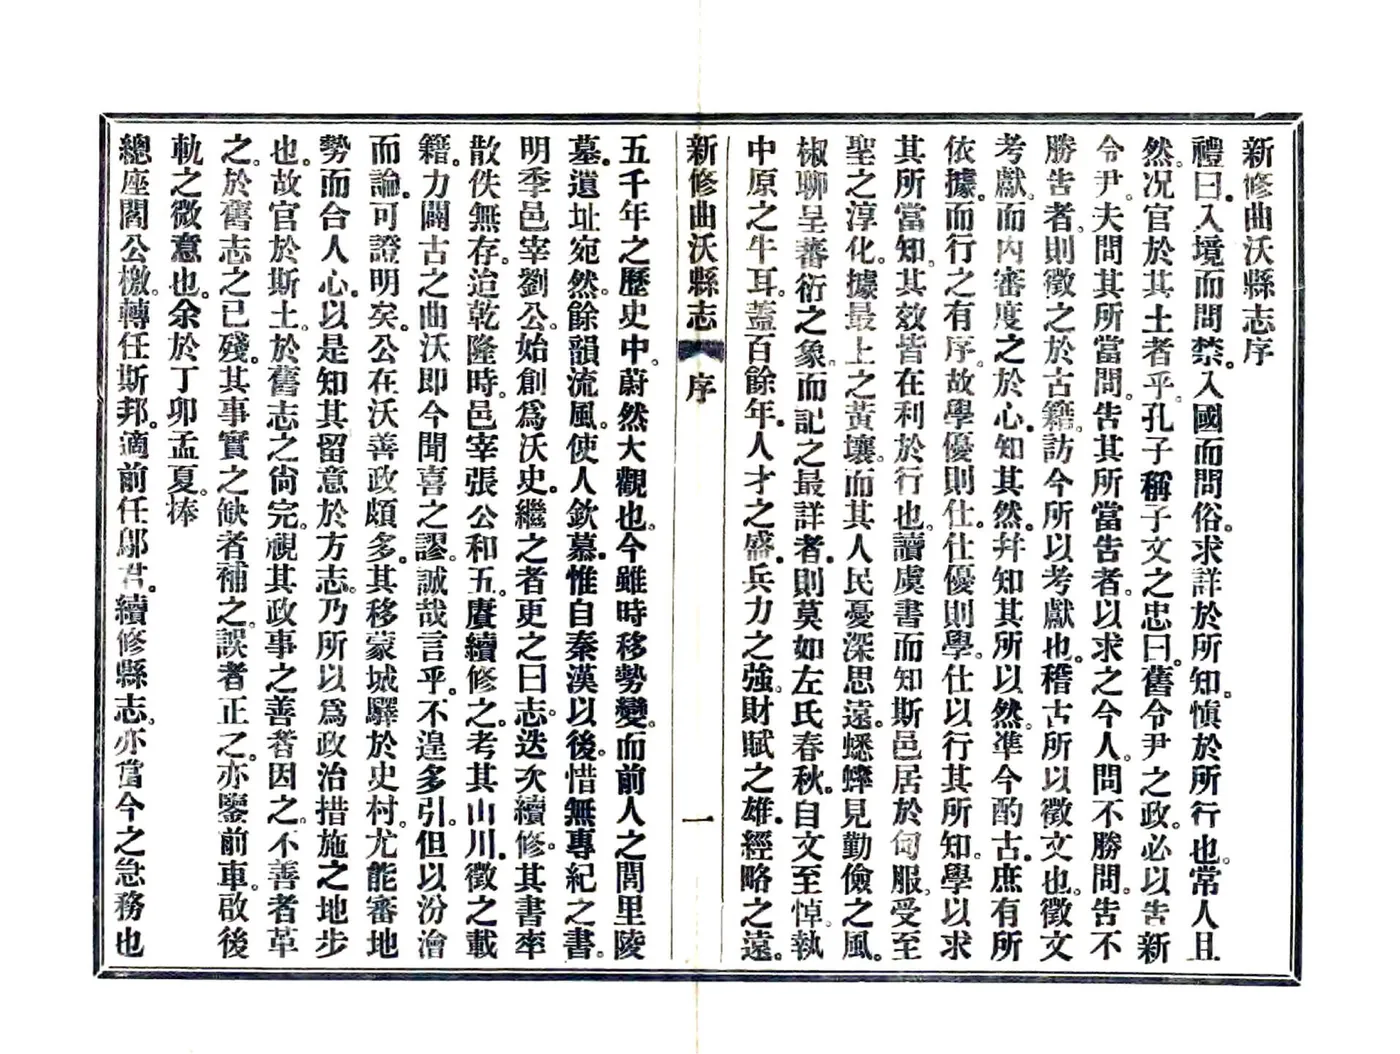 新修曲沃縣志序
禮曰。入境而問禁。入國而問俗。求詳於所知。慎於所行也。常人且
然。况官於其土者乎。孔子稱子文之忠曰。舊令尹之政。必以告新
令尹。夫問其所當問。告其所當告者。以求之今人。問不勝問。告不
勝告者。則徵之於古籍。訪今所以考獻也。稽古所以徵文也。徵文
考獻。而內審度之於心。知其然。幷知其所以然。準今酌古。庶有所
依據。而行之有序。故學優則仕。仕優則學。仕以行其所知。學以求
其所當知。其效皆在利於行也。讀虞書而知斯邑居於甸服。受至
聖之淳化。據最上之黃壤。而其人民憂深思遠。蟋蟀見勤儉之風。
椒聊呈蕃衍之象。而記之最詳者。則莫如左氏春秋。自文至悼。執
中原之牛耳。蓋百餘年。人才之盛。兵力之強。財賦之雄。經略之遠。
新修曲沃縣志 序 一
五千年之歷史中。蔚然大觀也。今雖時移勢變。而前人之閭里陵
墓。遺址宛然。餘韻流風。使人欽慕。惟自秦漢以後。惜無專紀之書。
明季邑宰劉公。始創爲沃史。繼之者更之曰志。迭次續修。其書率
散佚無存。迨乾隆時。邑宰張公和五。賡續修之。考其山川。徵之載
籍。力闢古之曲沃即今聞喜之謬。誠哉言乎。不遑多引。但以汾澮
而論。可證明矣。公在沃善政頗多。其移蒙城驛於史村。尤能審地
勢而合人心。以是知其留意於方志。乃所以爲政治措施之地步
也。故官於斯土。於舊志之尙完。視其政事之善者因之。不善者革
之。於舊志之已殘。其事實之缺者補之。誤者正之。亦鑒前車。啟後
軌之微意也。余於丁卯孟夏。捧
總座閻公檄。轉任斯邦。適前任鄔君。續修縣志。亦當今之急務也